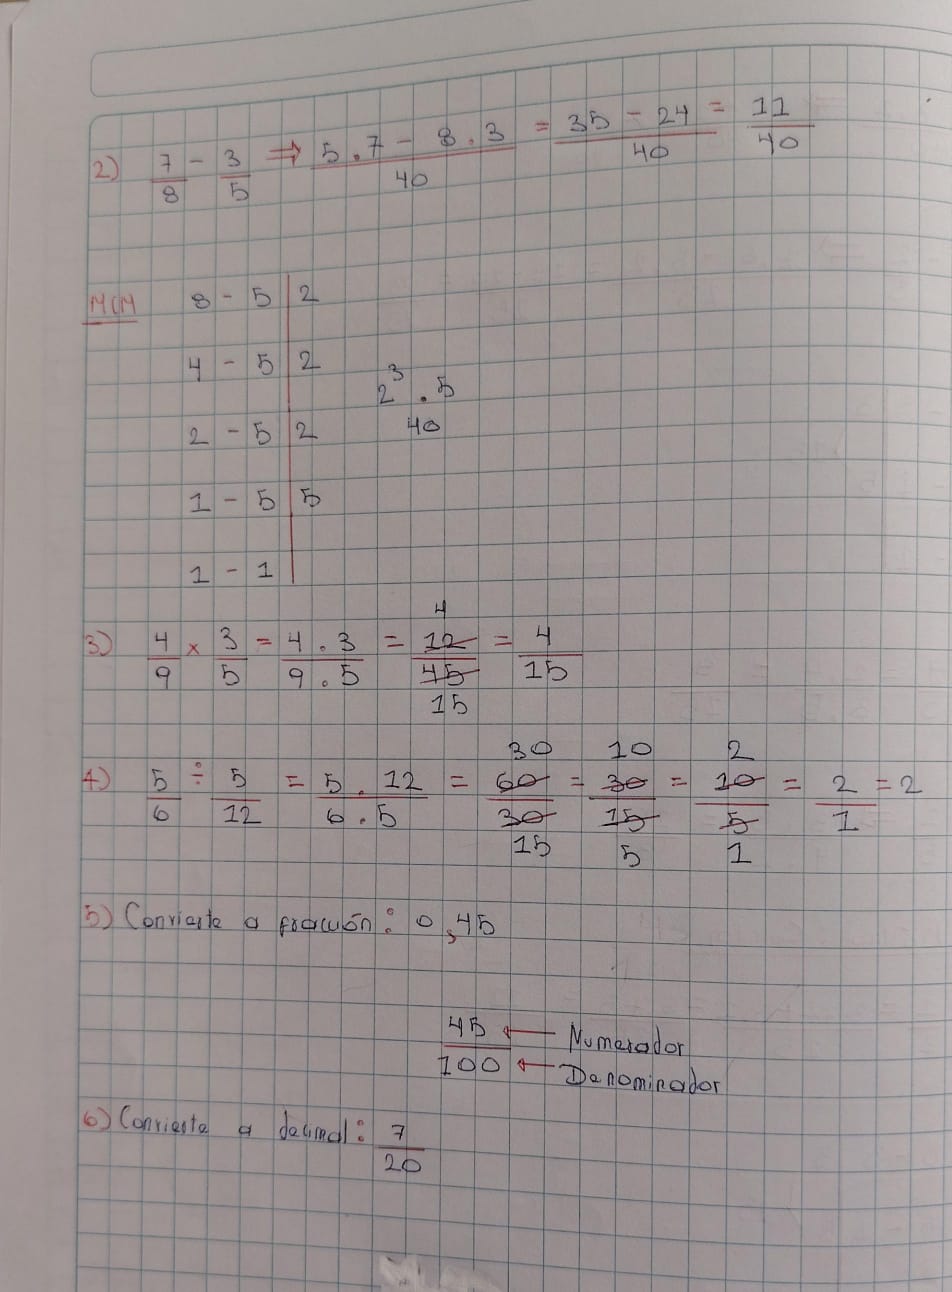 2) 7/8 - 3/5 ⇒ 5 . 7 - 8 . 3 / 40 = 35 - 24 / 40 = 11/40
MCM 8 - 5 | 2
4 - 5 | 2
2³ . 5
2 - 5 | 2 40
1 - 5 | 5
1 - 1 |
3) 4/9 × 3/5 = 4 . 3 / 9 . 5 = 12/45 4 15 = 4/15
4) 5/6 ÷ 5/12 = 5 . 12 / 6 . 5 = 60/30 30 15 = 30/15 10 5 = 10/5 2 1 = 2/1 = 2
5) Convierte a fracción: 0,45
45 ← Numerador
100 ← Denominador
6) Convierte a decimal: 7/20